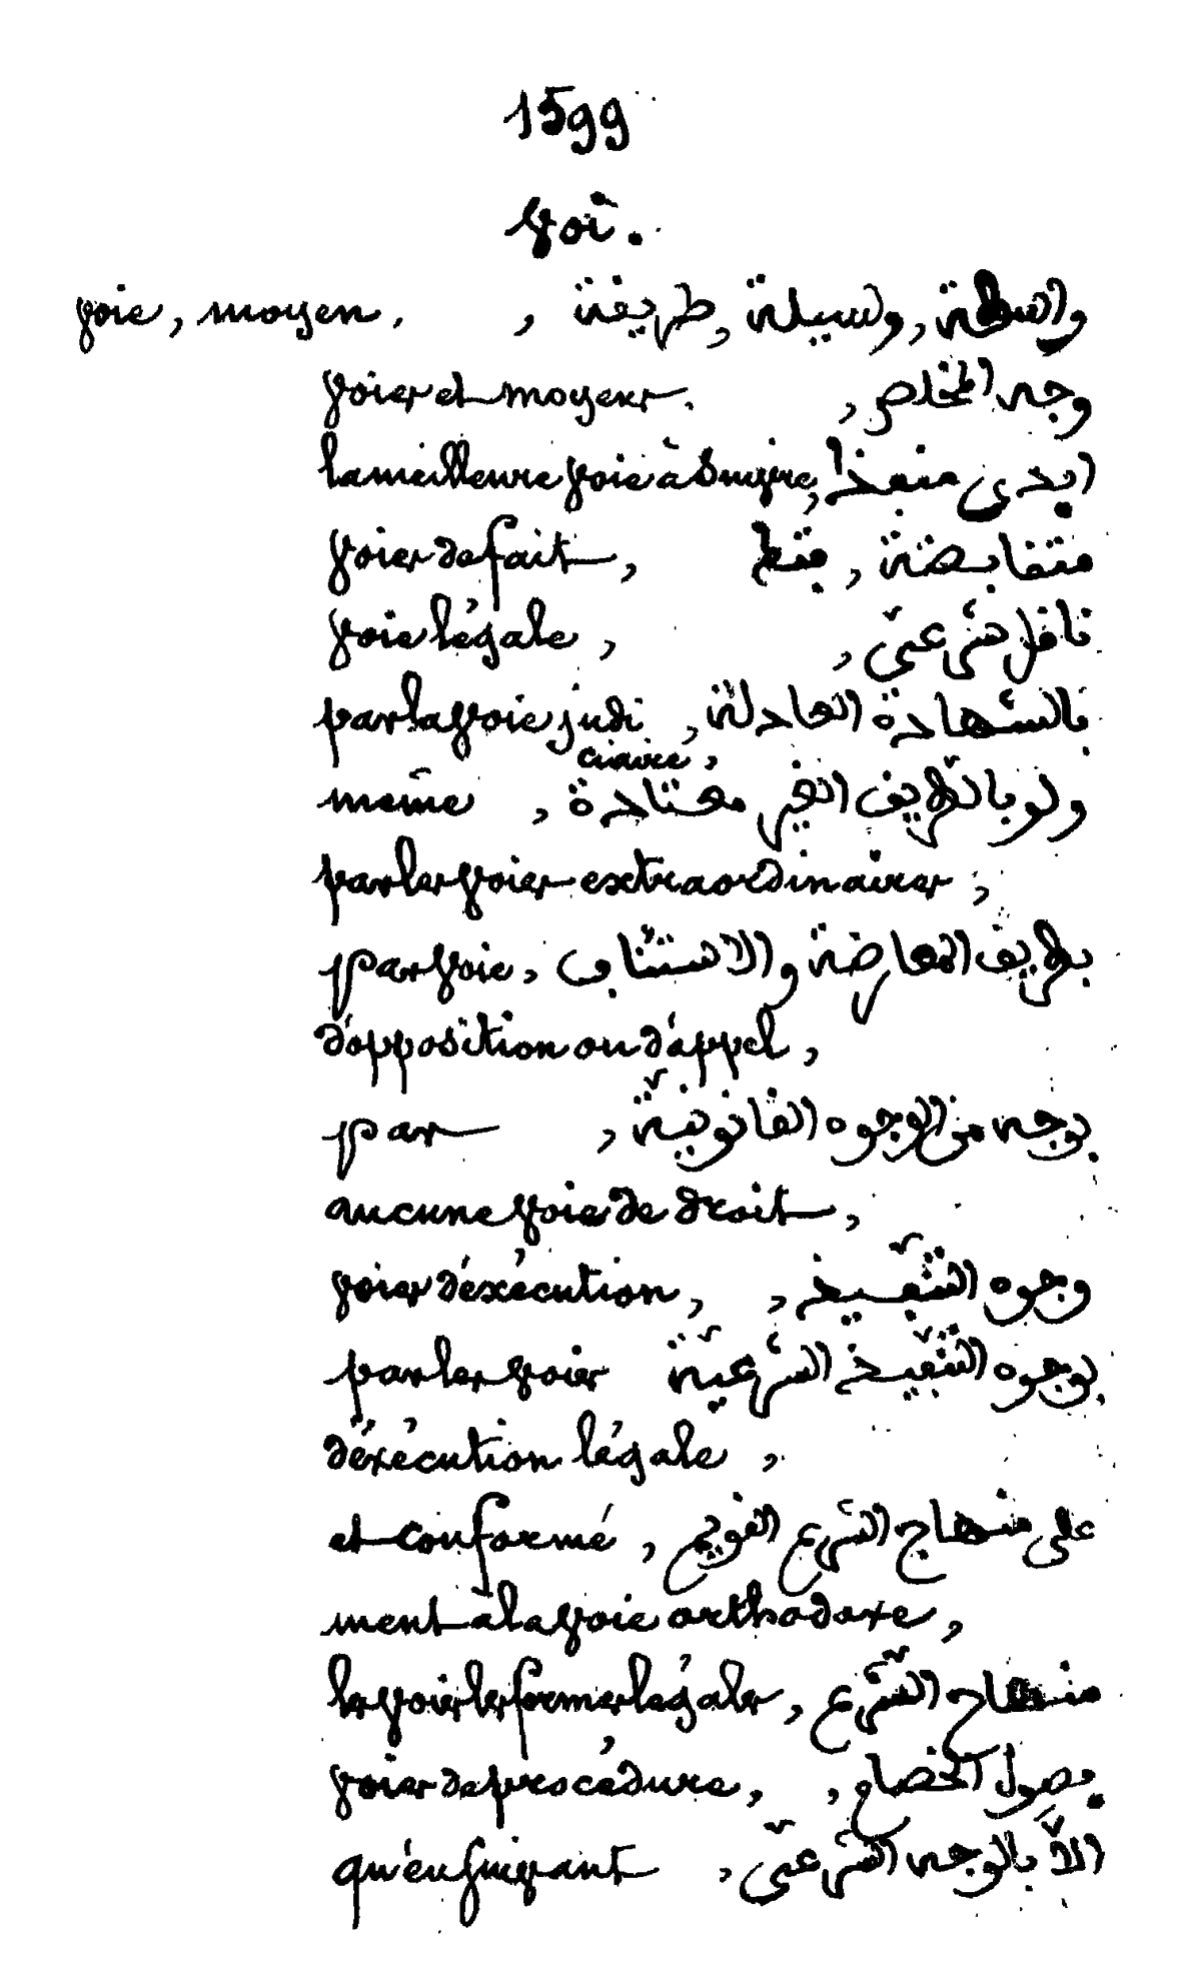 1599
Voi.
voie, moyen. , واسطة, وسيلة, طريقة
voies et moyens. , وجه المخلاص
la meilleure voie à suivre, ابدى منفذا
voies de fait, متقابضة,
voie légale, , ناقل شرعيّ
par la voie judi , بالشهادة العادلة
ciaire,
même , ولو بالطريق الغير معتادة
par les voies extraordinaires,
par voie, بطريق المعارضة والاستئناف
d'opposition ou d'appel,
par , بوجه من الوجوه القانونيّة
aucune voie de droit,
voies d'éxécution, , وجوه التنّفيذ
par les voies بوجوه التنّفيذ الشرعيّة
d'éxécution légale,
et conformé, على منهاج الشرع القويم
ment à la voie orthodoxe,
les voies les formes légales, منهاج الشّرع
voies de procédure, , بصول الخصام
qu'en suivant , الاّ بالوجه الشرعيّ